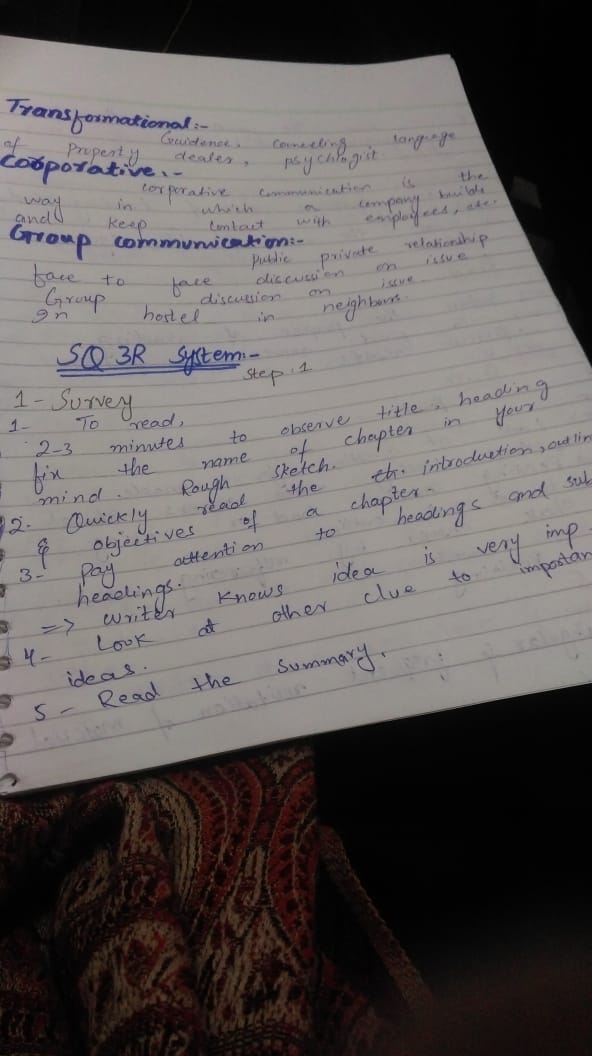 Transformational:-
Guidence, Conneling, language
of Property dealer, psychlogist
Cooporative:-
corporative communication is the
way in which a company builds
and keep contact with employees, etc.
Group communication:-
Public private relationship
face to face discussion on issue
Group discussion on issue
In hostel in neighbours.
SQ 3R System:-
Step.1
1- Survey
1- To read,
2-3 minutes to observe title, heading
fix the name of chapter in your
mind. Rough sketch.
2. Quickly read the introduction, outline
& objectives of a chapter.
3- Pay attention to headings and sub
headings.
=> writer knows idea is very imp
4- Look at other clue to importan
ideas.
5- Read the summary.